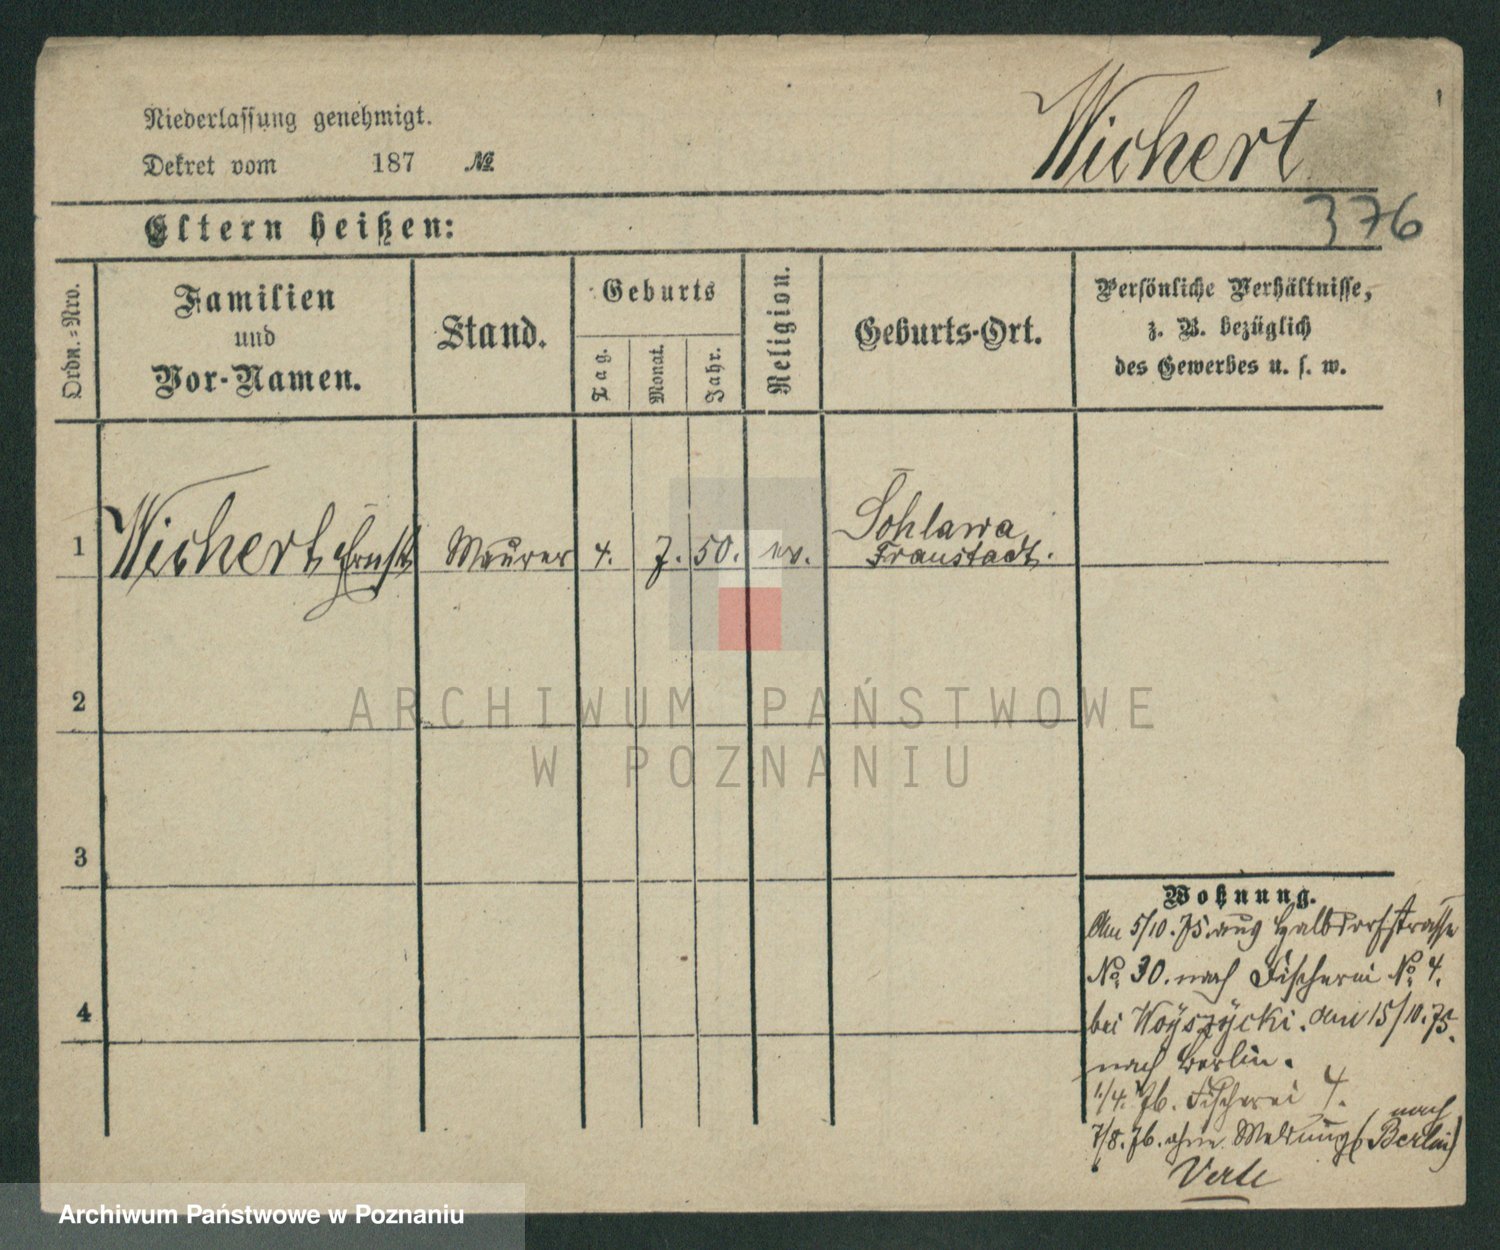 Niederlassung genehmigt.
Dekret vom 187 №
Wichert
376
Eltern heißen:
Ordn.-Nro.
Familien
und
Vor-Namen.
Stand.
Geburts
Tag.
Monat.
Jahr.
Religion.
Geburts-Ort.
Persönliche Verhältnisse,
z. B. bezüglich
des Gewerbes u. s. w.
1 Wichert, Ernst Maurer 4. 7. 50. ev. Sohlawa
Fraustadt.
2
3
4
Wohnung.
Am 5/10.75. aus Halbdorfstrasse
No. 30. nach Fischerei No. 4.
bei Woÿszÿcki. am 15/10.75.
nach Berlin.
1./4. 76. Fischerei 4.
7/8. 76. ohne Meldung (nach
Berlin)
Verte
ARCHIWUM PAŃSTWOWE
W POZNANIU
Archiwum Państwowe w Poznaniu